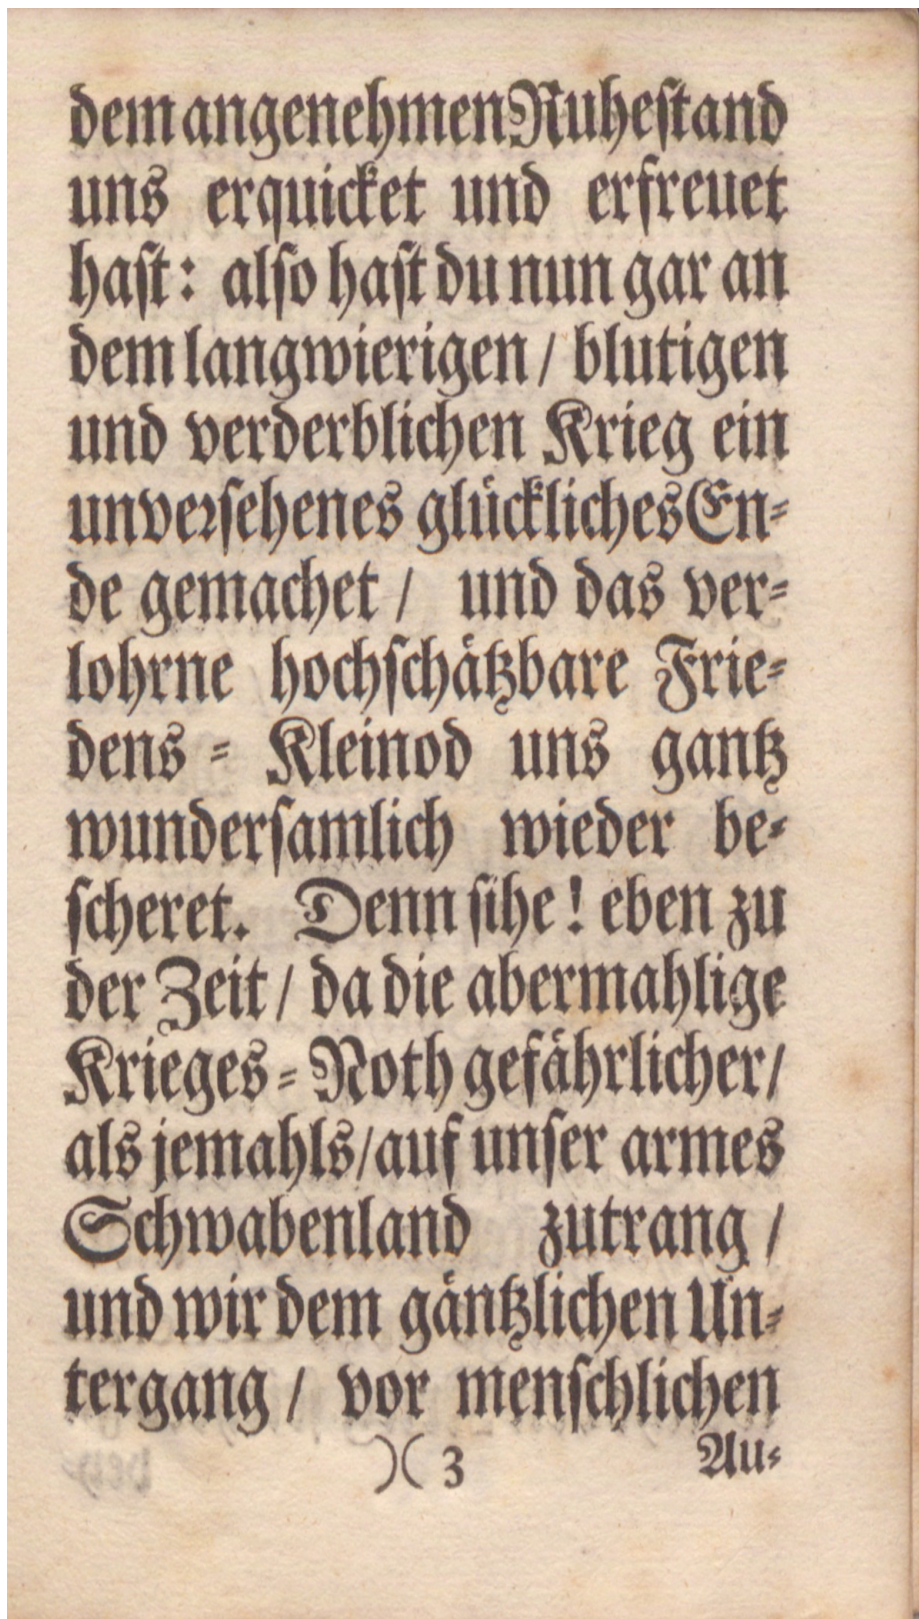 dem angenehmen Ruheſtand
uns erquicket und erfreuet
haſt: alſo haſt du nun gar an
dem langwierigen / blutigen
und verderblichen Krieg ein
unverſehenes glückliches En-
de gemachet / und das ver-
lohrne hochſchätzbare Frie-
dens - Kleinod uns gantz
wunderſamlich wieder be-
ſcheret. Denn ſihe! eben zu
der Zeit / da die abermahlige
Krieges - Noth gefährlicher /
als jemahls / auf unſer armes
Schwabenland zutrang /
und wir dem gäntzlichen Un-
tergang / vor menſchlichen
)( 3 Au-